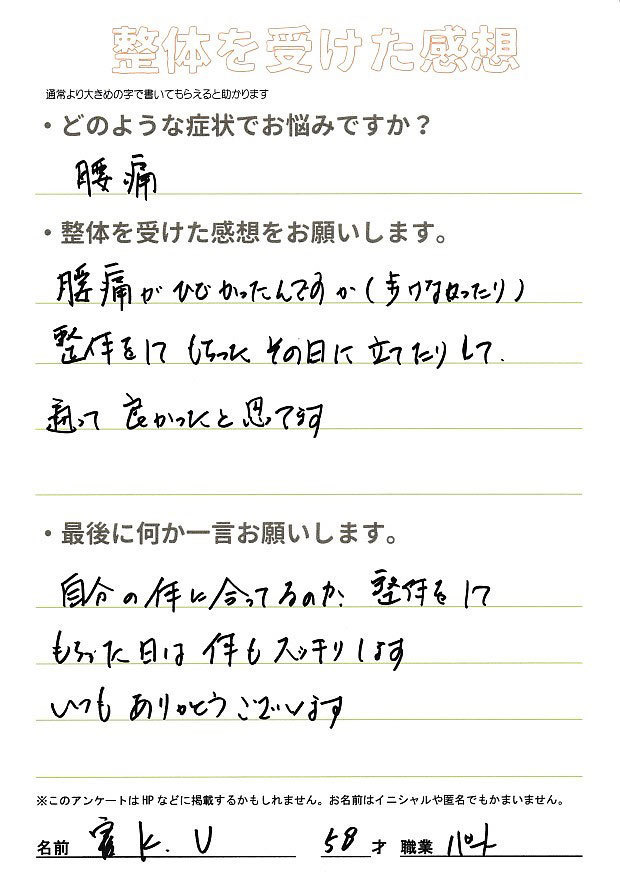 整体を受けた感想
通常より大きめの字で書いてもらえると助かります
・どのような症状でお悩みですか？
腰痛
・整体を受けた感想をお願いします。
腰痛がひどかったんですが(歩けなかったり)
整体をして もらった その日に 立てたりして、
通って 良かったと思てます
・最後に何か一言お願いします。
自分の体に合ってるのか、整体をして
もらった日は 体も スッキリします
いつも ありがとうございます
※このアンケートはHPなどに掲載するかもしれません。お名前はイニシャルや匿名でもかまいません。
名前 K. U 58 才 職業 パート